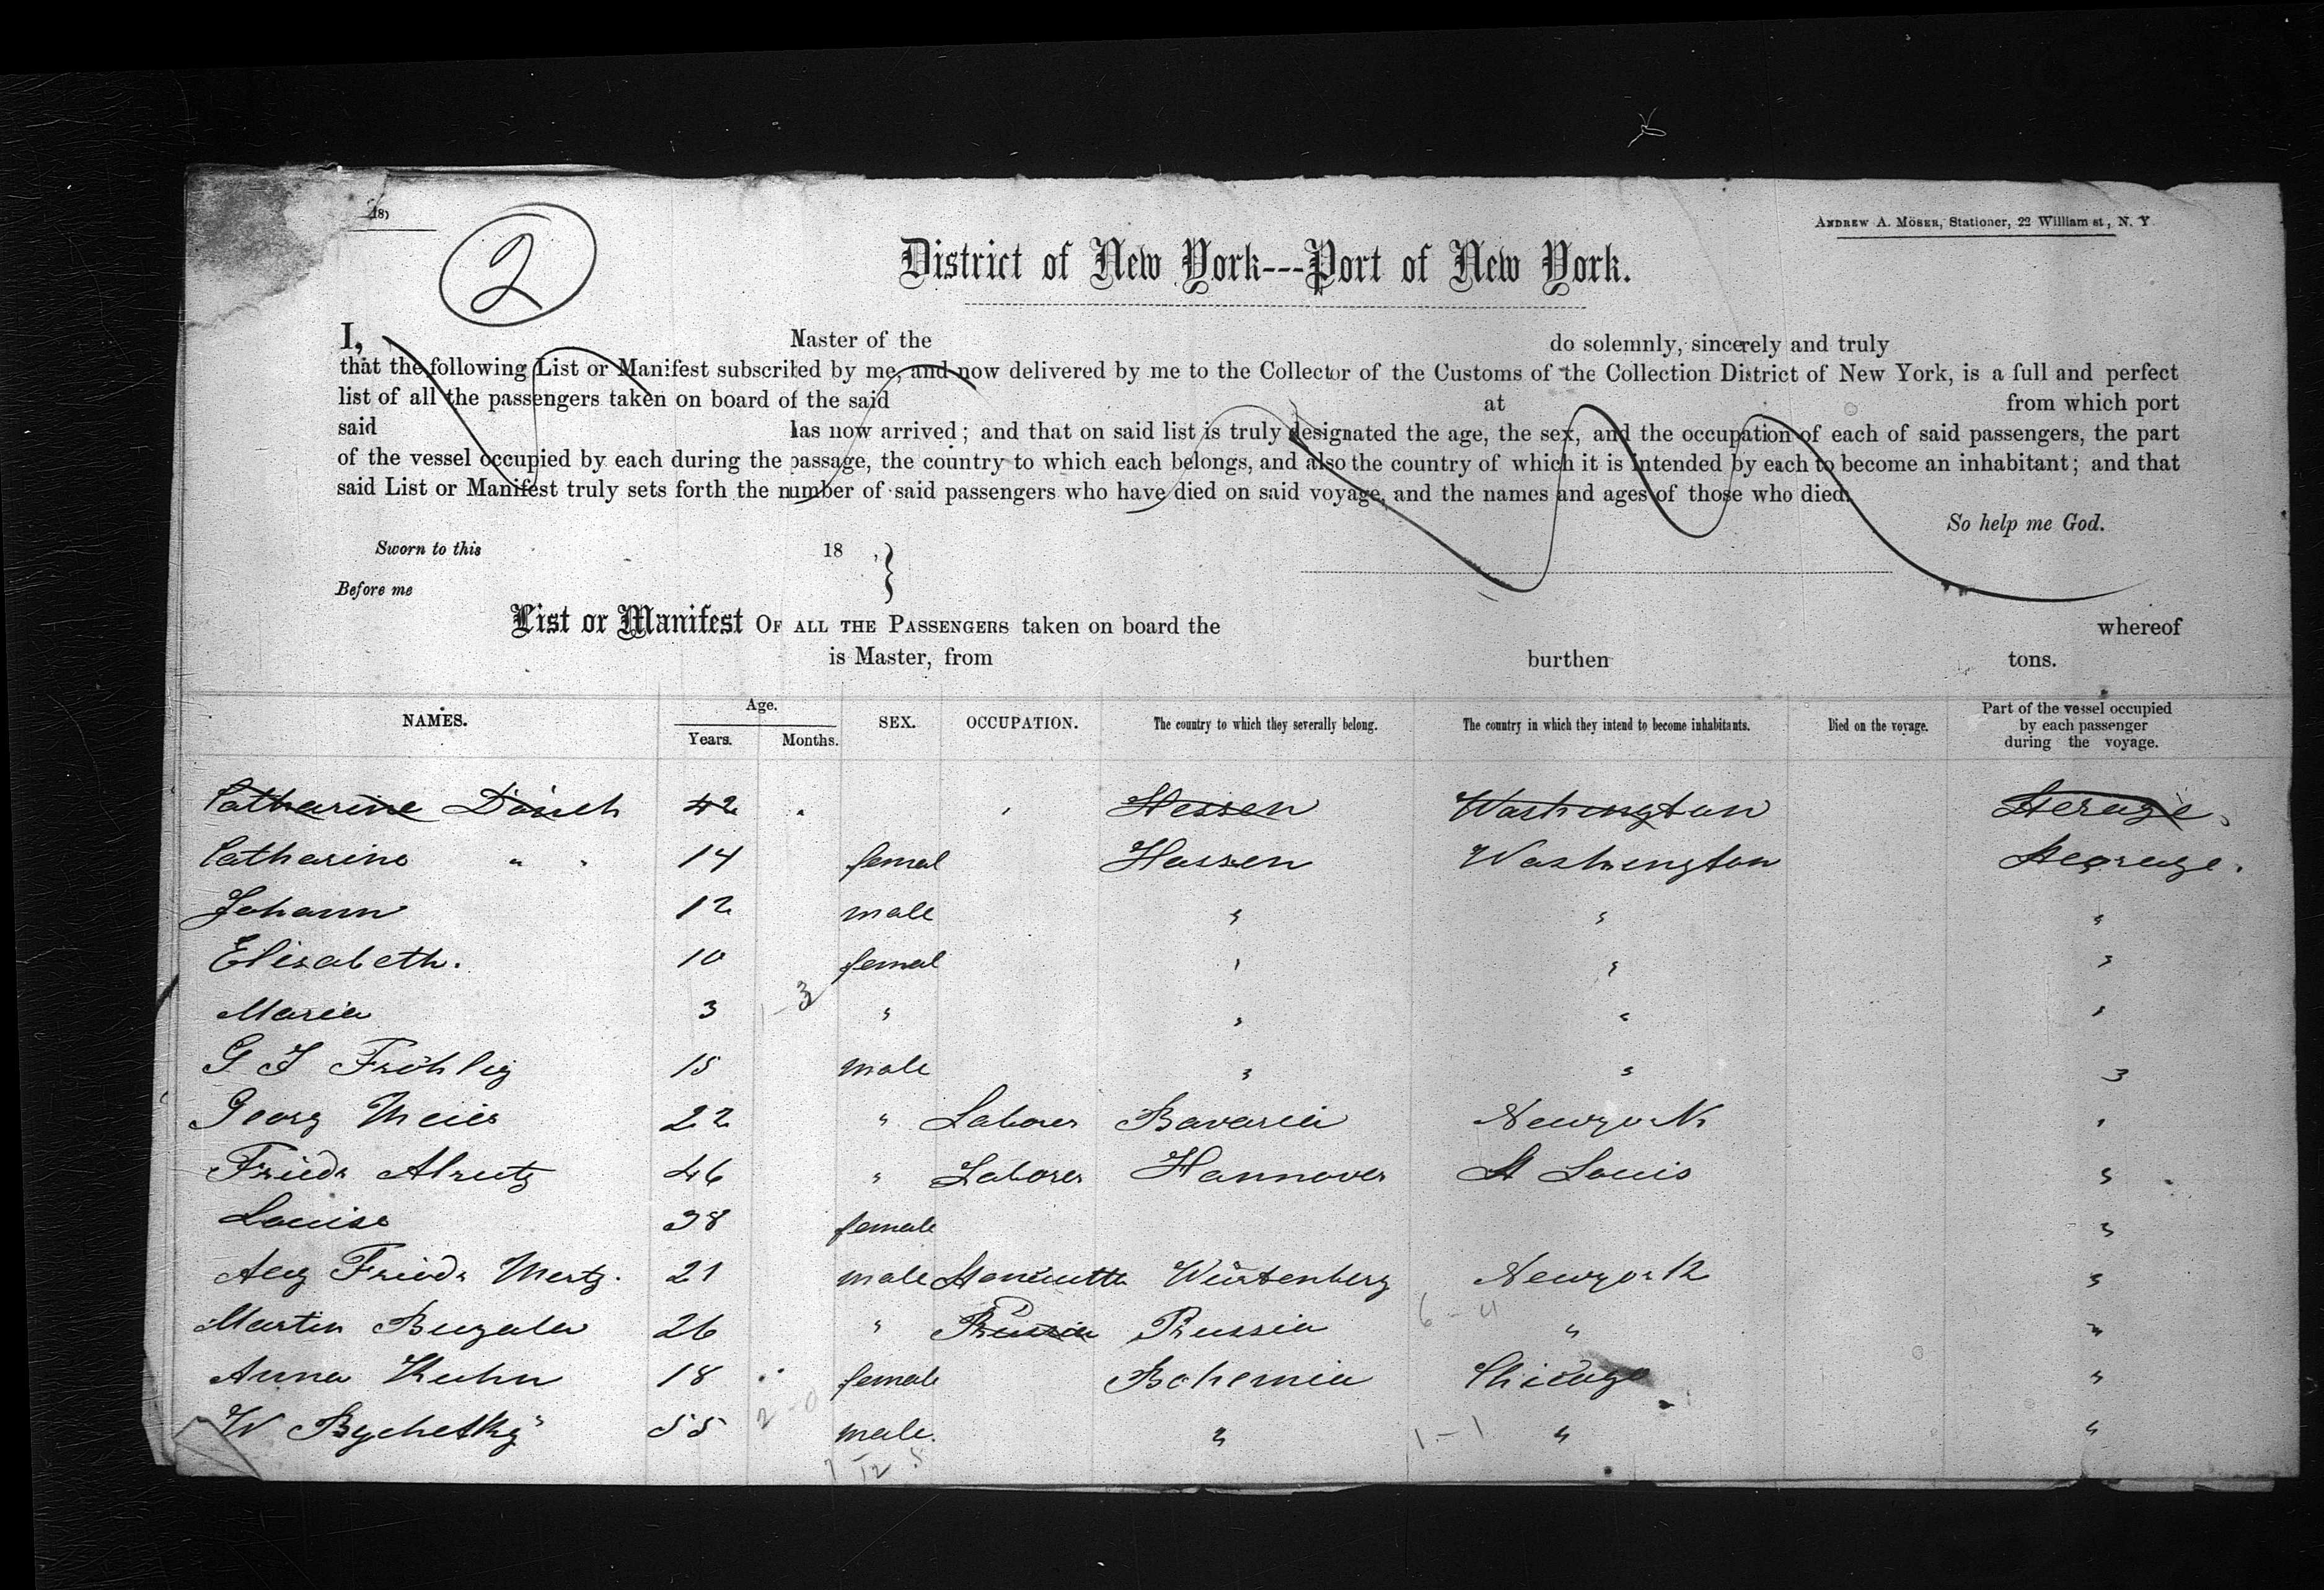 2
ANDREW A. MÖSER, Stationer, 22 William st, N. Y
District of New York---Port of New York.
I, Master of the do solemnly, sincerely and truly
that the following List or Manifest subscribed by me, and now delivered by me to the Collector of the Customs of the Collection District of New York, is a full and perfect
list of all the passengers taken on board of the said at from which port
said has now arrived; and that on said list is truly designated the age, the sex, and the occupation of each of said passengers, the part
of the vessel occupied by each during the passage, the country to which each belongs, and also the country of which it is intended by each to become an inhabitant; and that
said List or Manifest truly sets forth the number of said passengers who have died on said voyage, and the names and ages of those who died.
So help me God.
Sworn to this 18 ,}
Before me
List or Manifest OF ALL THE PASSENGERS taken on board the whereof
is Master, from burthen tons.
NAMES. Age. Years. Months. SEX. OCCUPATION. The country to which they severally belong. The country in which they intend to become inhabitants. Died on the voyage. Part of the vessel occupied by each passenger during the voyage.
Catharine 42 Hessen Washington Sterage
Catharine " 14 femal Hessen Washington Steerage.
Johann 12 male " " "
Elisabeth. 10 femal " " "
Maria 3 " " " "
G J Fröhlig 15 male " " "
Georg Meier 22 " Laborer Bavaria Newyork "
Friedr Alrutz 46 " Laborer Hannover St Louis "
Louise 38 female "
Aug Friedr Mertz. 21 male Würtenberg Newyork "
Martin 26 " Prussia Prussia " "
Anna Kuhn 18 female Bohemia Chicago "
W 55 male. " " "